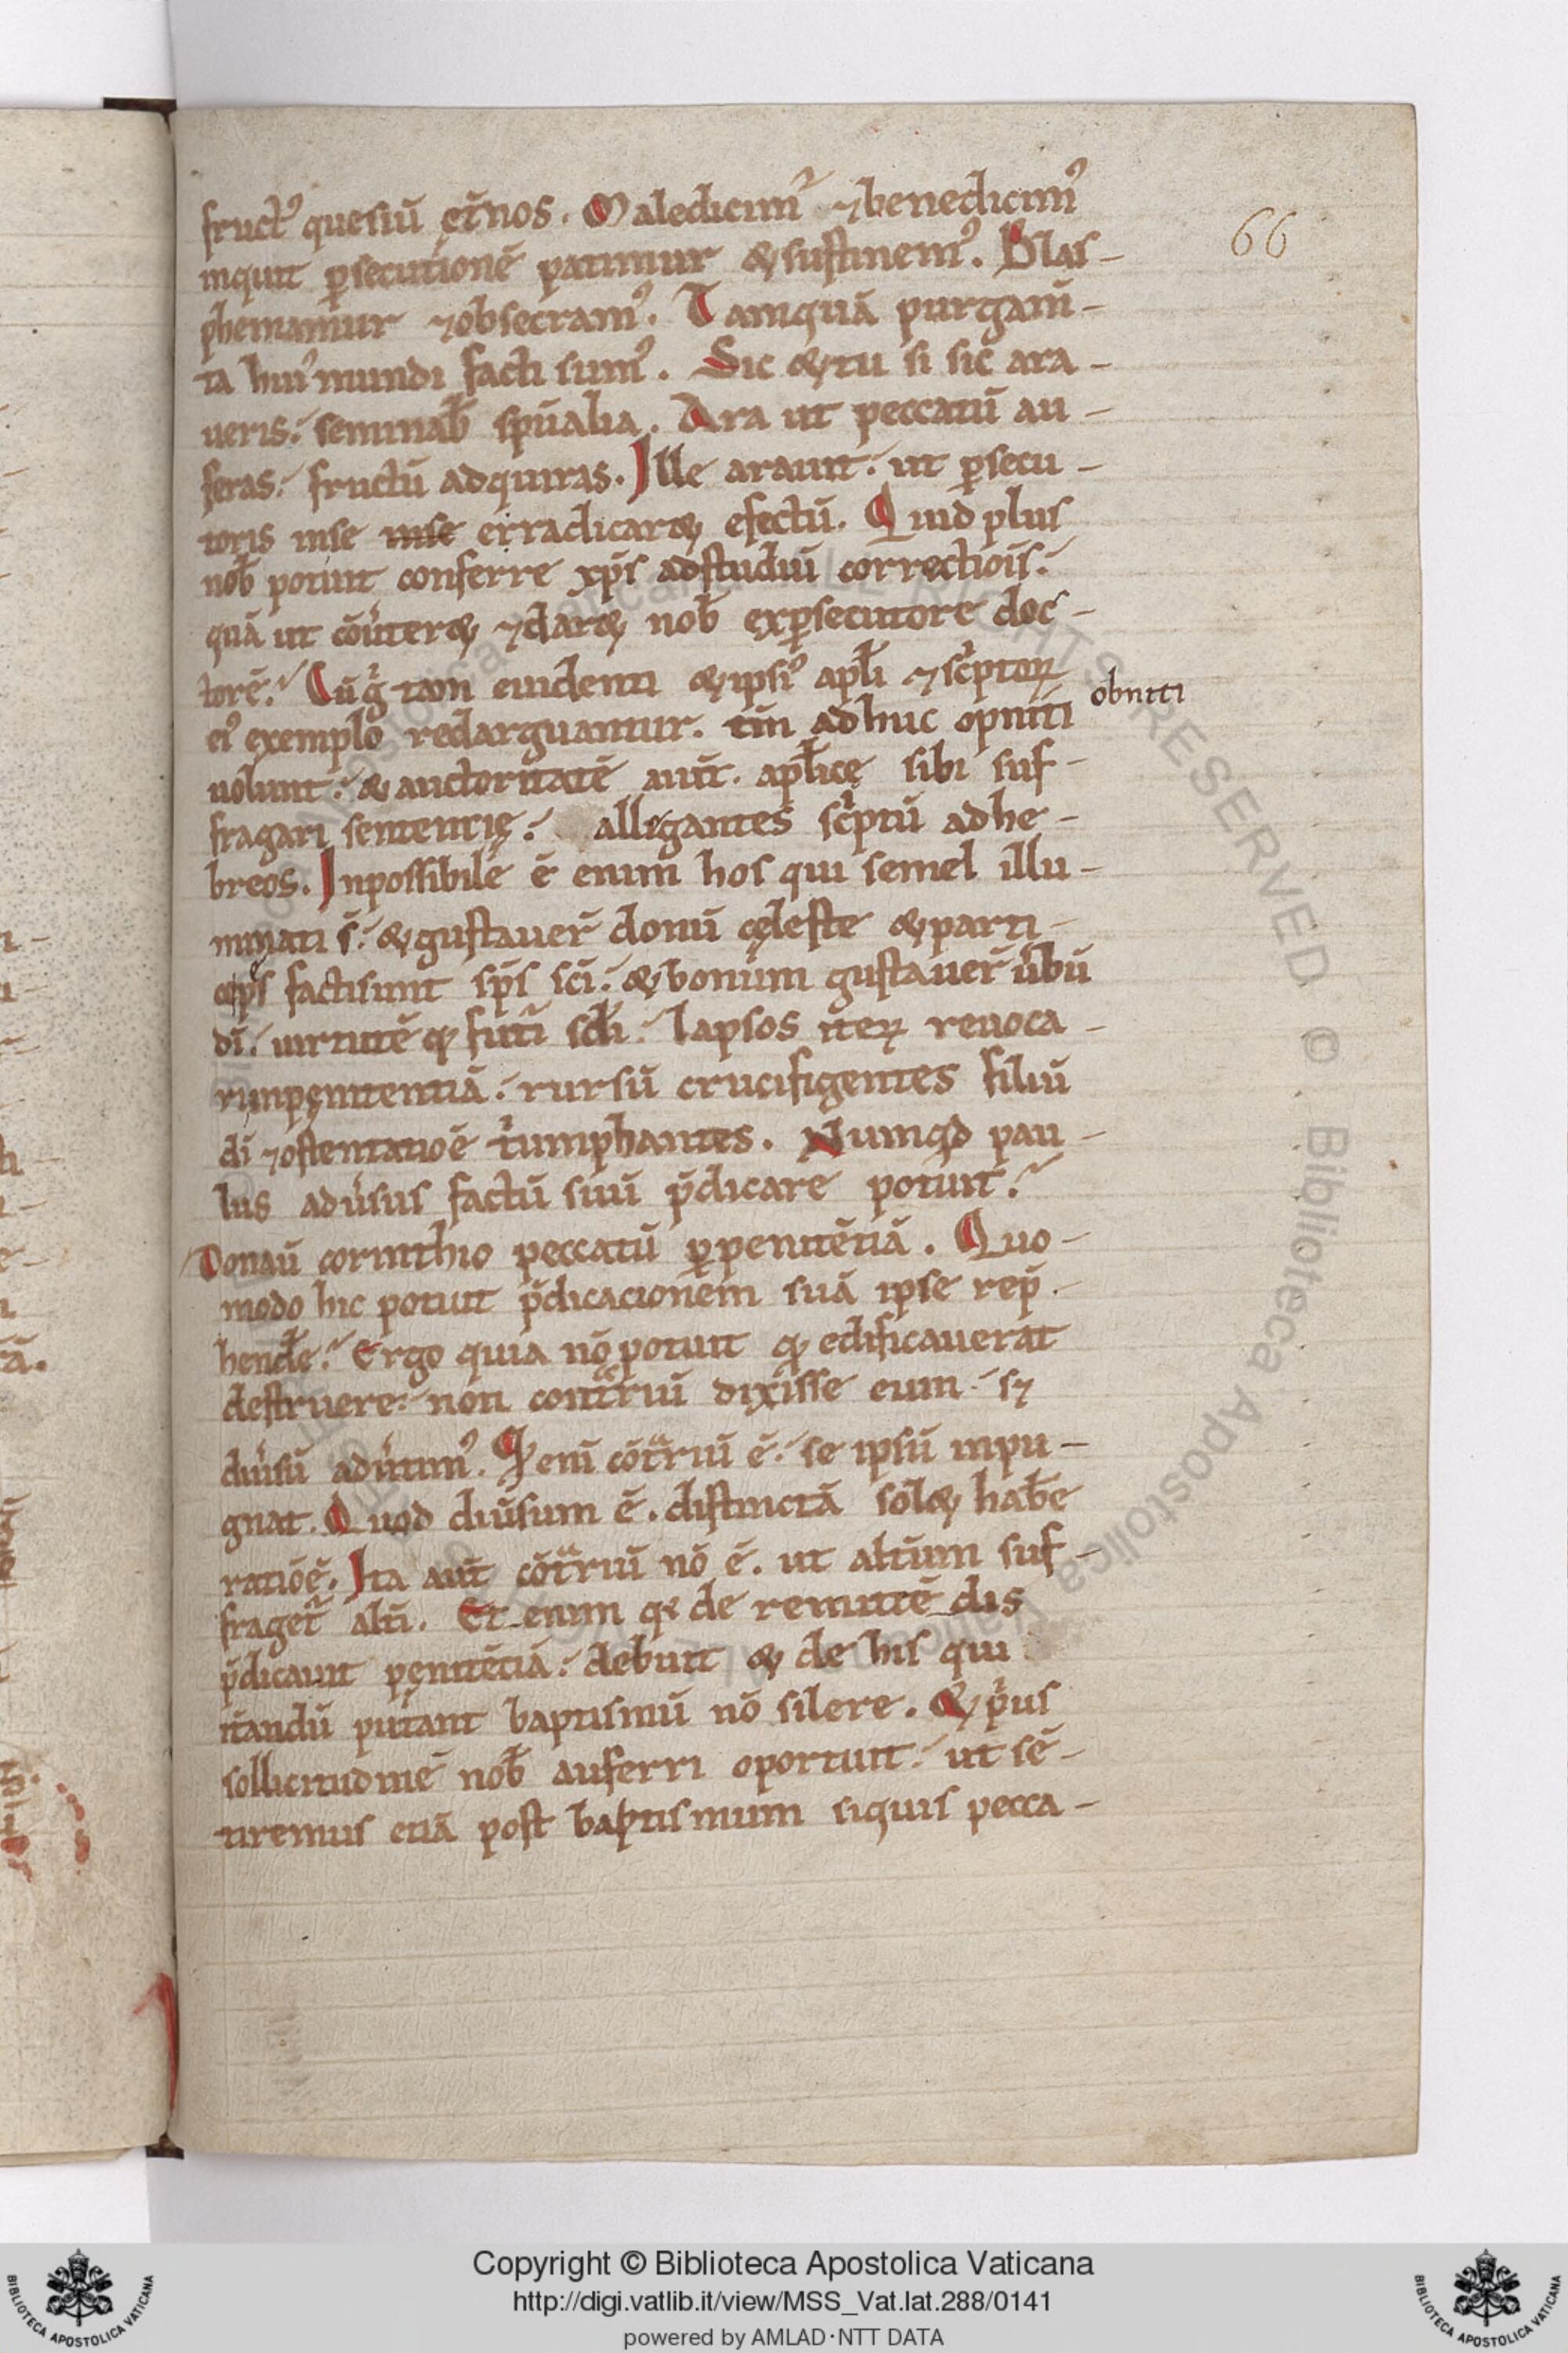 fructꝰ quesiū et̄nos. Maledicimꝰ ⁊benedicimꝰ
inquit ꝑsecutionē patimur &sustinemꝰ. Blas-
phemamur ⁊obsecramꝰ. Tamquā purgam̄-
ta huiꝰ mundi facti sumꝰ. Sic &tu si sic ara-
ueris. seminab̄ spūalia. Ara ut peccatū au-
feras. fructū adquiras. Ille arauit. ut ꝑsecu-
toris inse inse erradicar& efectū. Quid plus
nob̄ potuit conferre xp̄s adstudiū correctiois̄.
quā ut cōuter& ⁊dar& nob̄ exꝑsecutore doc-
torē. Cū g̊ tam euidenti &ipsiꝰ apl̄i ⁊sc̄ptoꝝ
eiꝰ exemplo redarguantur. tm̄ adhuc opniti
obniti
uolunt. & auctoritatē aiut̄. apl̄icę sibi suf-
fragari sententię. allegantes sc̄ptū adhe-
breos. Inpossibile ē enim hos qui semel illu-
minati s̄. &gustauer̄ donū cęleste &parti-
ceps factisunt sp̄s sc̄i. &bonum gustauer̄ ūbū
dī. uirtutē q; futī scl̄i. lapsos iteꝝ reuoca-
rīnpęnitentiā. rursū crucifigentes filiū
dī ⁊ostentatioē t̄umphantes. Numqd pau-
lus adūsus factū suū p̄dicare potuit.
Donaū corinthio peccatū ꝑpenitētiā. Quo-
modo hic potuit p̄dicacionem suā ipse rep̄.
hend̄e. Ergo quia nō potuit q edificauerat
destruere. non cont̄riū dixisse eum. sꝫ
diūsū adūtimꝰ. Q enī cōt̄riū ē. se ipsū inpu-
gnat. Quod diūsum ē. distinctā sol& hab̄e
ratiōē. Ita aut̄ cōt̄riū nō ē. ut altūm suf-
fraget̄ altī. Et enim q de remittē dis
p̄dicauit pęnitētiā. debuit & de his qui
it̄andū putant baptismū nō silere. & p̄us
sollicitudinē nob̄ auferri oportuit. ut sē-
tiremus etiā post baptismum siquis pecca-
66
Copyright © Biblioteca Apostolica Vaticana
http://digi.vatlib.it/view/MSS_Vat.lat.288/0141
powered by AMLAD·NTT DATA